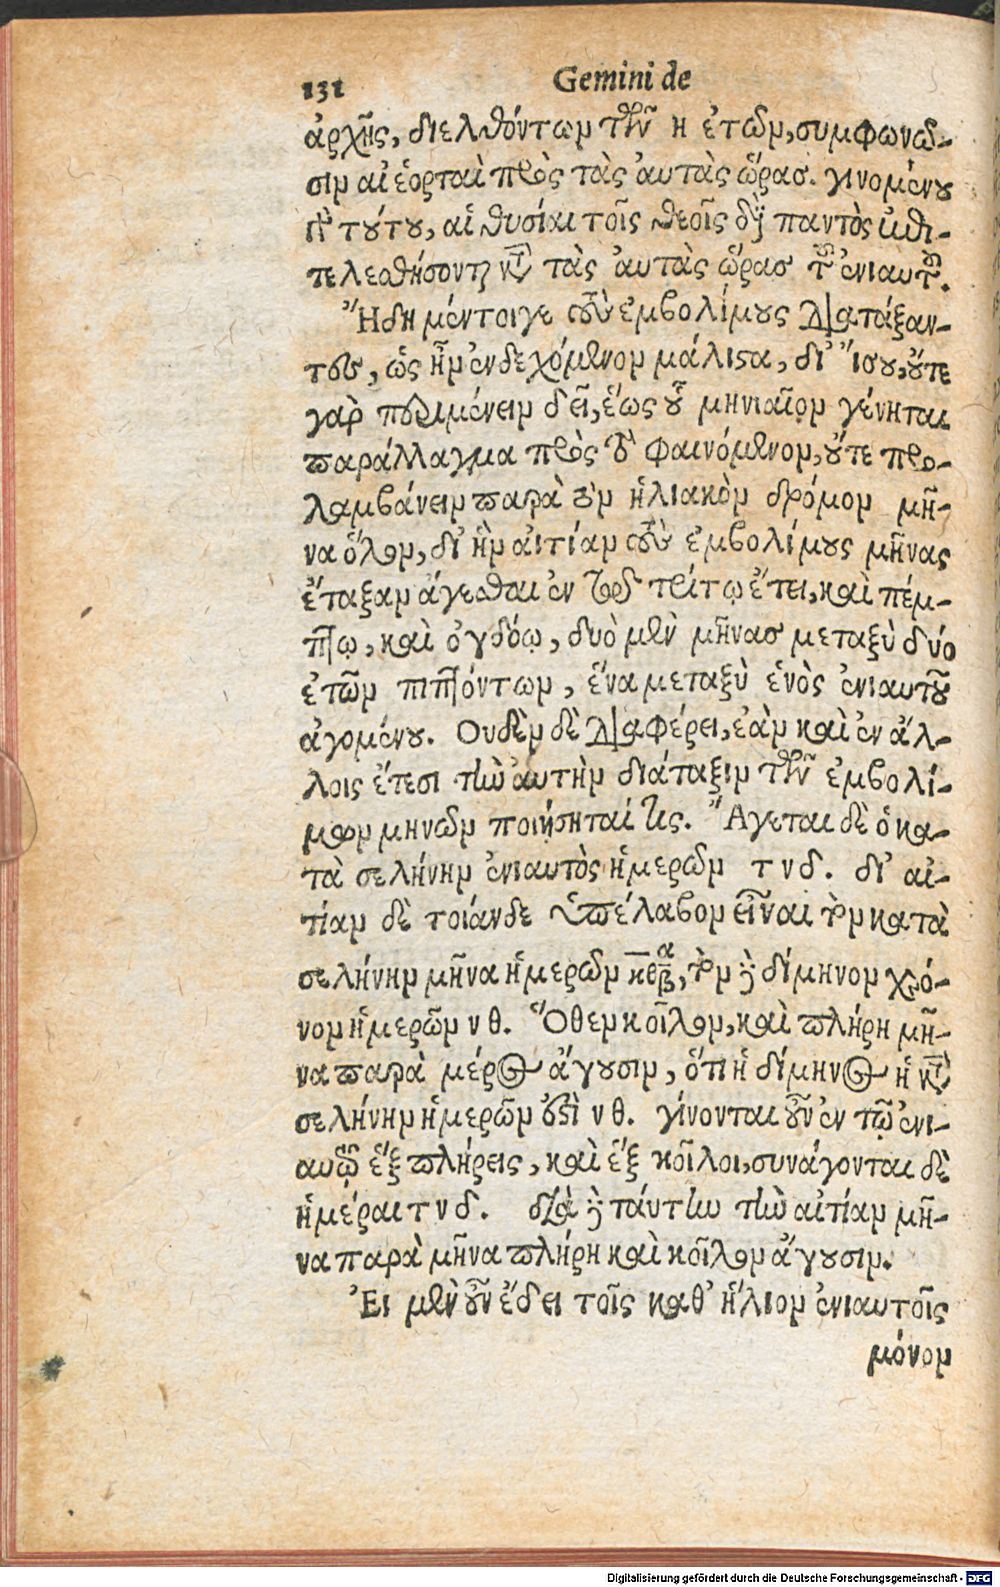 131 Gemini de
ἀρχῆς, διελθόντων τῶν η ἐτῶν, συμφωνῶ-
σιν αἱ ἑορταὶ πρὸς τὰς αὐτὰς ὥρας. γινομένου
τούτου, αἱ θυσίαι τοῖς θεοῖς διὰ παντὸς ἐπι-
τελεσθήσονται κατὰ τὰς αὐτὰς ὥρας τοῦ ἐνιαυτοῦ.
Ἤδη μέντοιγε τοὺς ἐμβολίμους διατάξαν-
τες, ὡς ἦν ἐνδεχόμενον μάλιστα, δι' ἴσου, οὔτε
γὰρ περιμένειν δεῖ, ἕως οὗ μηνιαῖον γένηται
παράλλαγμα πρὸς τὸ φαινόμενον, οὔτε προ-
λαμβάνειν παρὰ τὸν ἡλιακὸν δρόμον μῆ-
να ὅλον, δι' ἣν αἰτίαν τοὺς ἐμβολίμους μῆνας
ἔταξαν ἄγεσθαι ἐν τῷ τρίτῳ ἔτει, καὶ πέμ-
πτῳ, καὶ ὀγδόῳ, δυὸ μὲν μῆνας μεταξὺ δύο
ἐτῶν πιπτόντων, ἕνα μεταξὺ ἑνὸς ἐνιαυτοῦ
ἀγομένου. Οὐδὲν δὲ διαφέρει, ἐὰν καὶ ἐν ἄλ-
λοις ἔτεσι τὴν αὐτὴν διάταξιν τῶν ἐμβολί-
μων μηνῶν ποιήσηταί τις. Ἄγεται δὲ ὁ κα-
τὰ σελήνην ἐνιαυτὸς ἡμερῶν τνδ. δι' αἰ-
τίαν δὲ τοιάνδε ὑπέλαβον εἶναι τὸν κατὰ
σελήνην μῆνα ἡμερῶν κθ α/β, τὸν δὲ δίμηνον χρό-
νον ἡμερῶν νθ. Ὅθεν κοῖλον, καὶ πλήρη μῆ-
να παρὰ μέρος ἄγουσιν, ὅτι ἡ δίμηνος ἡ κατὰ
σελήνην ἡμερῶν ἐστὶ νθ. γίνονται οὖν ἐν τῷ ἐνι-
αυτῷ ἓξ πλήρεις, καὶ ἓξ κοῖλοι, συνάγονται δὲ
ἡμέραι τνδ. διὰ δὲ ταύτην τὴν αἰτίαν μῆ-
να παρὰ μῆνα πλήρη καὶ κοῖλον ἄγουσιν.
Εἰ μὲν οὖν ἔδει τοῖς καθ' ἥλιον ἐνιαυτοῖς
μόνον
Digitalisierung gefördert durch die Deutsche Forschungsgemeinschaft - DFG